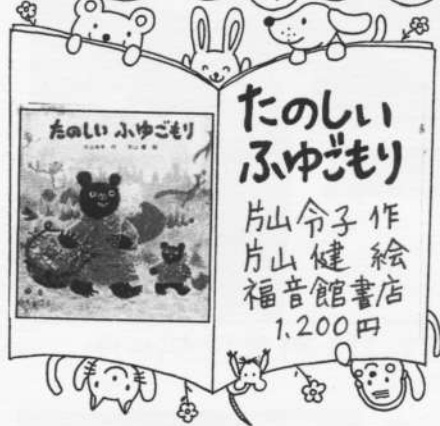 たのしい ふゆごもり
片山令子 作 片山 健 絵
たのしい
ふゆごもり
片山令子 作
片山 健 絵
福音館書店
1,200円